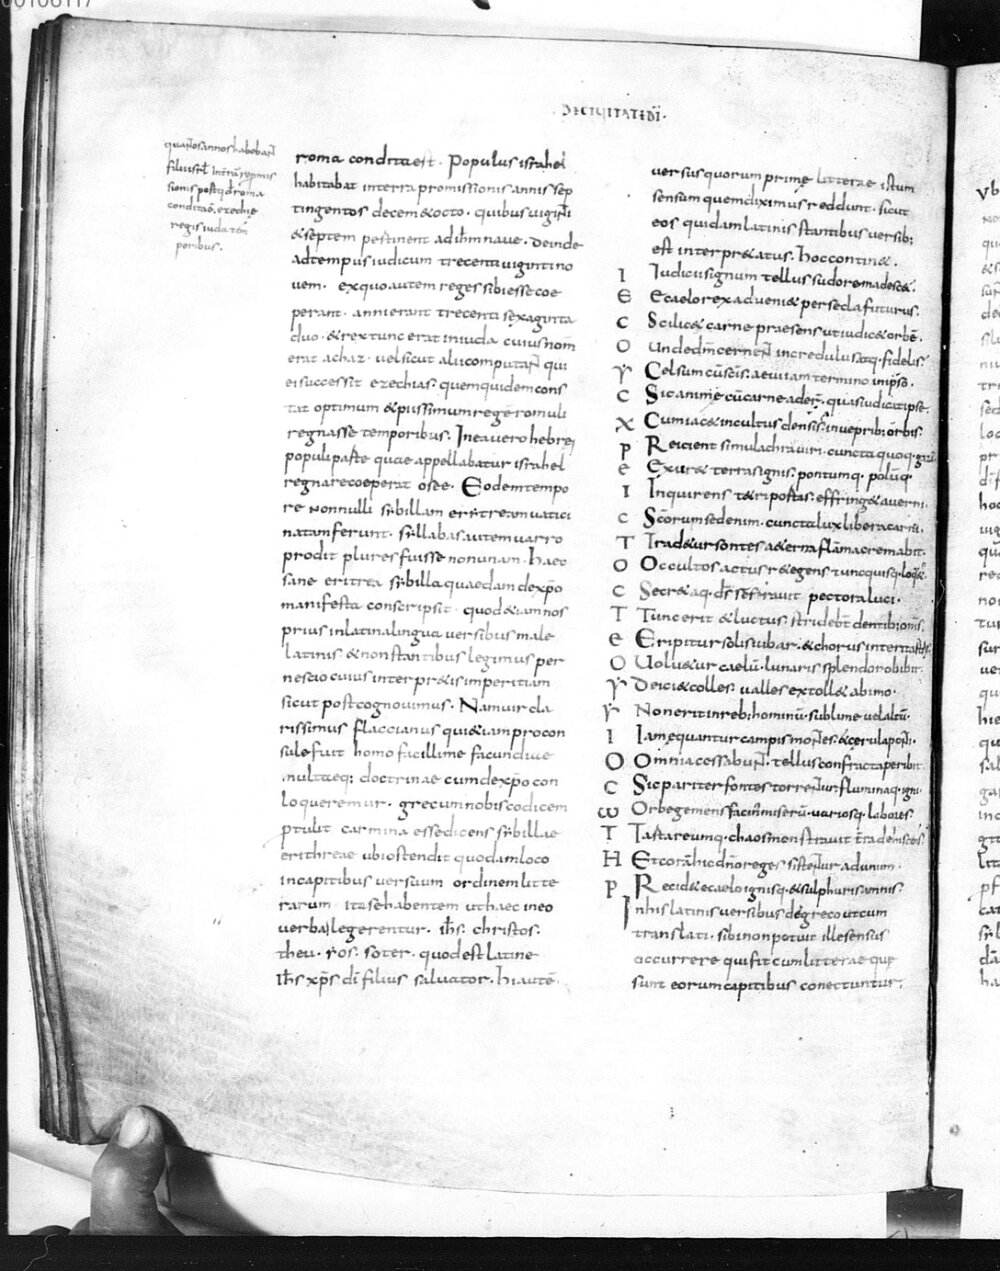 00106117
DE CIUITATE DI·
quaños annos habebañ
filii isrl in terra repmis
sionis postqđ roma
condita ẽ, ezechie
regis iuda tem
poribus·
roma condita est· Populus israhel
habitabat interra promissionis annis sep
tingentos decem & octo· quibus uiginti
& septem pertinent ad ihm naue· deinde
ad tempus iudicum trecenti uiginti no
uem· ex quo autem reges ibi esse coe
perant· anni erant trecenti sexaginta
duo· & rex tunc erat in iuda cuius nom
erat achaz· uel sicut alii computañ qui
ei successit ezechias· quem quidem cons
tat optimum & piissimum regẽ romuli
regnasse temporibus· In ea uero hebrei
populi parte quae appellabatur israhel
regnare coeperat osee· Eodem tempo
re nonnulli sibillam eritream uatici
natam ferunt· sybillas autem uarro
prodit plures fuisse non unam· haec
sane eritrea sybilla quaedam de xpo
manifesta conscripsit· quod &iam nos
prius in latina lingua uersibus male
latinis & non stantibus legimus per
nescio cuius interpr&is imperitiam
sicut post cognouimus· Nam uir cla
rissimus flaccianus qui &iam procon
sule fuit homo facillime facundiae
multaeq; doctrinae cum de xpo con
loqueremur· grecum nobis codicem
ptulit carmina esse dicens sybillae
erithreae ubi ostendit quodam loco
in capitibus uersuum ordinem litte
rarum· ita se habentem ut haec in eo
uerba legerentur· ihs· christos·
theu· yos· soter· quod est latine
ihs xps di filius saluator· hi autẽ
uersus quorum prime litterae istum
sensum quem diximus reddunt· sicut
eos quidam latinis stantibus uersib;
est interpr&atus· hoc contin&·
I Iudicii signum tellus sudore madesc&·
E E caelo rex adueni& per secla futurus·
C Scilic& carne praesens ut iudic& orbẽ·
O Unde dm cerneñ incredulus atq· fidelis·
Y Celsum cũ scis· aeui iam termino in ipso·
C Sic animẽ cũ carne ader· quas iudicat ipse
X Cum iac& incultus densis in uepribus orbis·
P Reicient simulachra uiri· cuncta quoq· gazã
E Exur& terras ignis· pontumq· polũq·
I Inquirens t&ri portas· effring& auerni·
C Scorum sed enim· cunctae lux libera carni
T Trad&ur sontes a&erna flãma cremabit·
O Occultos actus r&egens tunc quisq· loq&·
C Secr&aq· ds reserauit pectora luci·
T Tunc erit & luctus· stridebt dentib; oms·
E Eripitur solis iubar· & chorus interit astris
O Uolu&ur caelũ· lunaris splendor obibit·
Y Deici& colles· ualles extoll& ab imo·
Y Non erit in reb; hominũ· sublime uel altũ·
I Iam equantur campis montes· & cerula ponti·
O Omnia cessabuñ· tellus confracta peribit·
C Sic pariter fontes torrentur· fluminaq· igni·
T Tartareumq· chaos monstrauit terra dehiscens·
H Et corã hic dño reges sistentur ad unum·
P Recid& e caelo ignisq· & sulphuris amnis·
In his latinis uersibus de greco utcum
translatis· ibi non potuit ille sensus
occurrere qui fit cum litterae que
sunt eorum capitibus conectuntur·